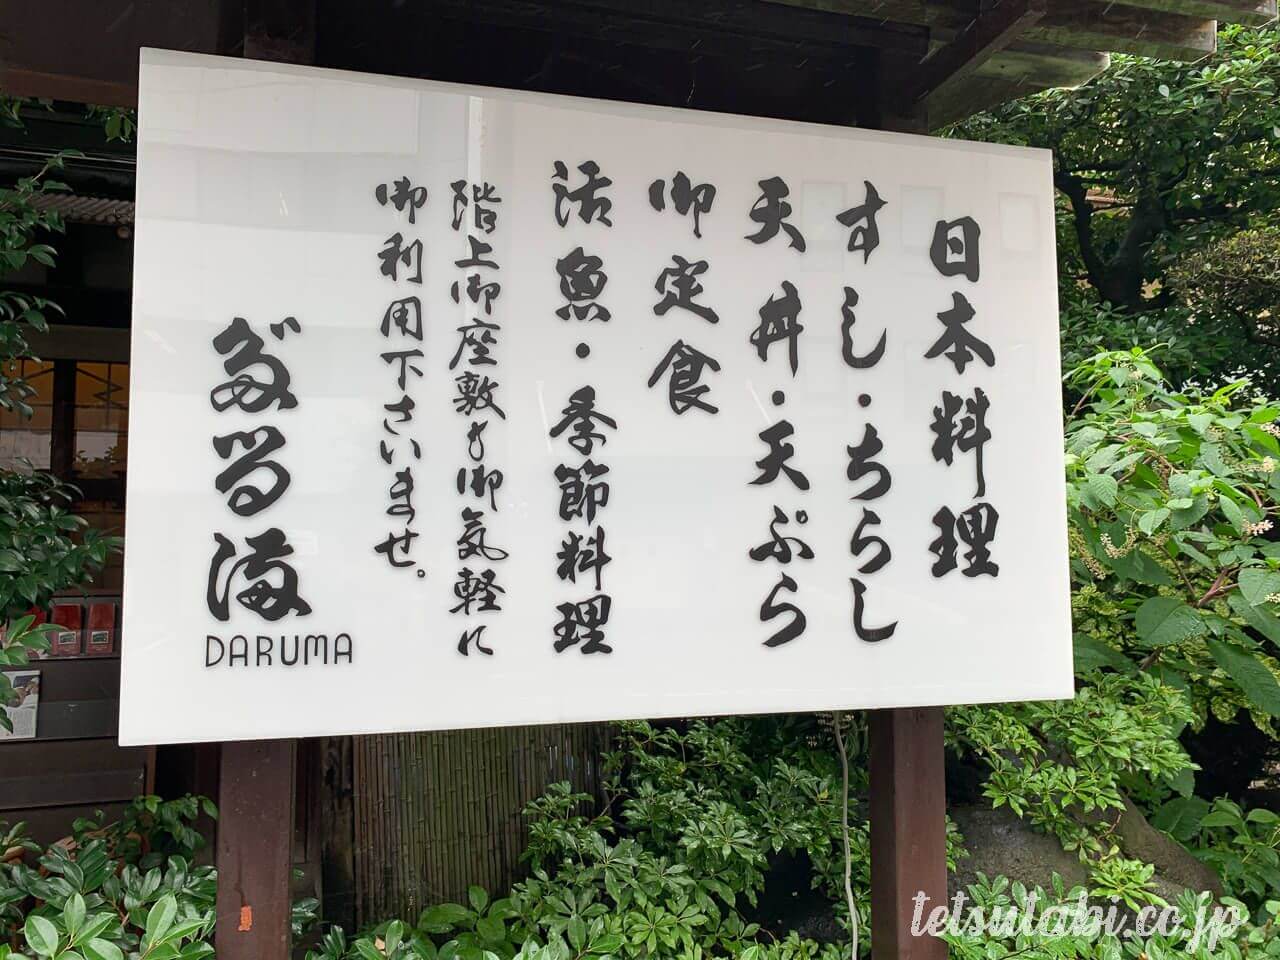 日本料理
すし・ちらし
天丼・天ぷら
御定食
活魚・季節料理
階上御座敷も御気軽に
御利用下さいませ。
だるま
DARUMA
tetsutabi.co.jp